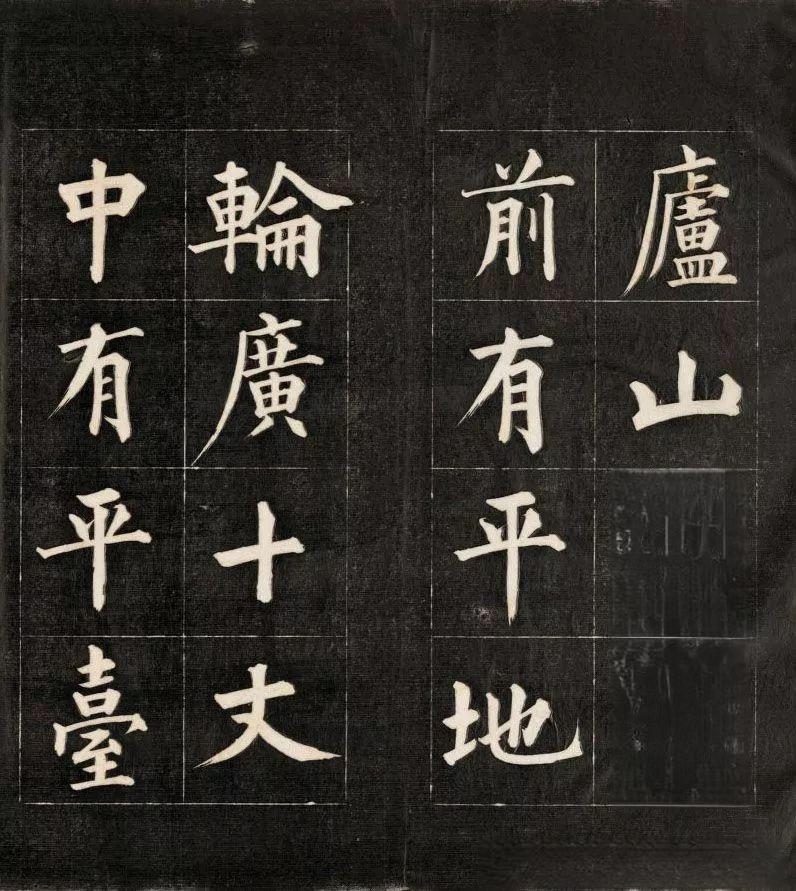 廬山
前有平地
輪廣十丈
中有平臺